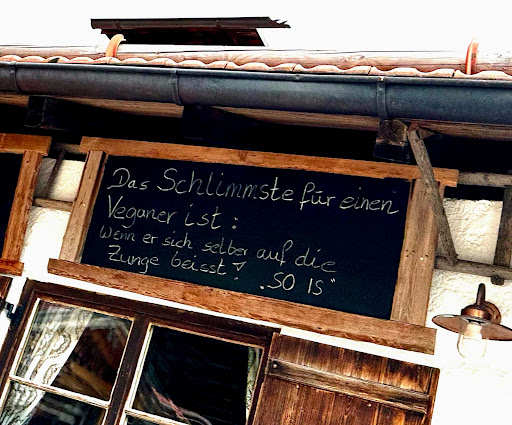 Das Schlimmste für einen
Veganer ist :
Wenn er sich selber auf die
Zunge beisst ! „SO IS“